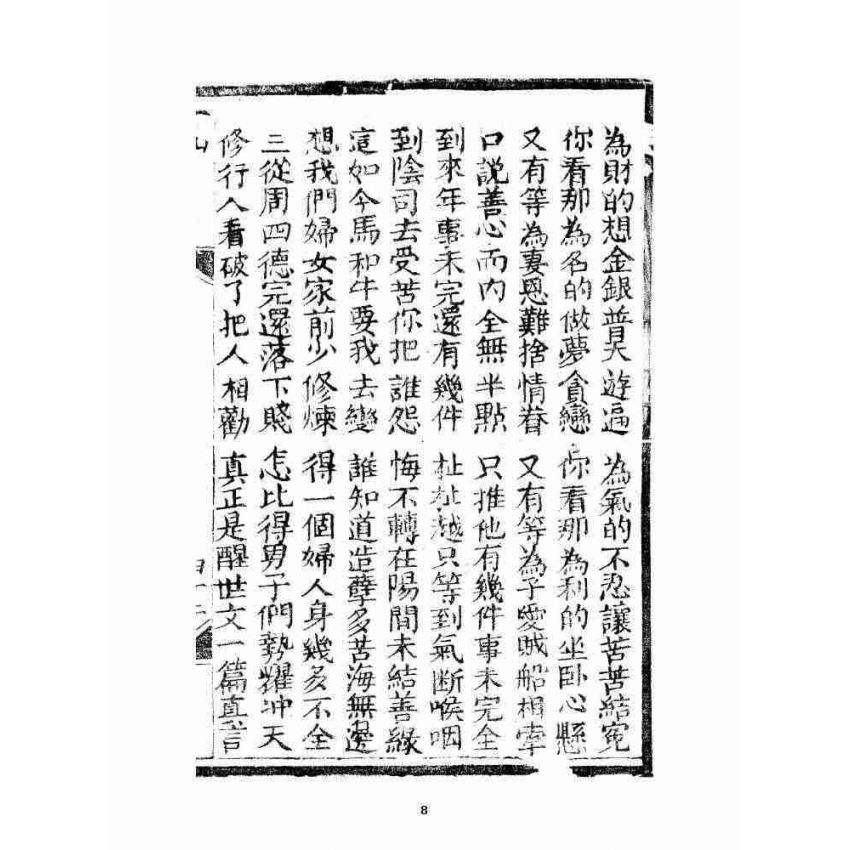 為財的想金銀普天遊遍 為氣的不忍讓苦苦結冤
你看那為名的做夢貪戀 你看那為利的坐卧心懸
又有等為妻恩難捨情眷 又有等為子愛賊船相牽
口說善心而內全無半點 只推他有幾件事未完全
到來年事未完還有幾件 扯扯越只等到氣斷喉咽
到陰司去受苦你把誰怨 悔不轉在陽間未結善緣
這如今馬和牛要我去變 誰知道造孽多苦海無邊
想我們婦女家前少修煉 得一個婦人身幾多不全
三從周四德完還落下賤 怎比得男子們勢耀冲天
修行人看破了把人相勸 真正是醒世文一篇直言
8